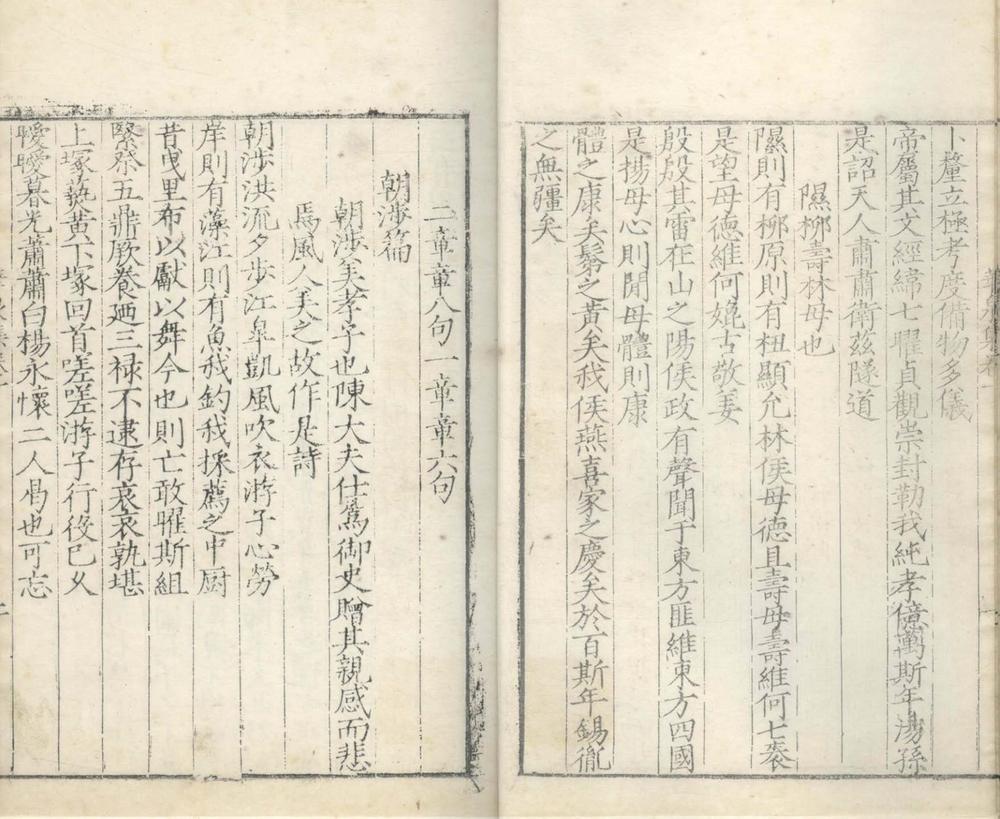 卜釐立極考度備物多儀
帝屬其文經緯七曜貞觀崇封勒我純孝億萬斯年湯孫
是詔天人肅肅衛茲隧道
隰柳壽林母也
隰則有柳原則有杻顯允林侯母德且壽母壽維何七袠
是望母德維何媲古敬姜
殷殷其雷在山之陽侯政有聲聞于東方匪維東方四國
是揚母心則閒母體則康
體之康矣鬢之黃矣我侯燕喜家之慶矣於百斯年錫胤
之無彊矣
二章章八句一章章六句
朝涉篇
朝涉美孝子也陳大夫仕為御史贈其親感而悲
焉風人美之故作是詩
朝涉洪流夕步江皐凱風吹衣游子心勞
岸則有藻江則有魚我釣我採薦之中厨
昔曳里布以獻以舞今也則亡敢曜斯組
緊祭五鼎厥養廼三祿不逮存哀哀孰堪
上塚蓺黃下塚回首嗟嗟游子行役已久
曖曖暮光蕭蕭白楊永懷二人曷也可忘